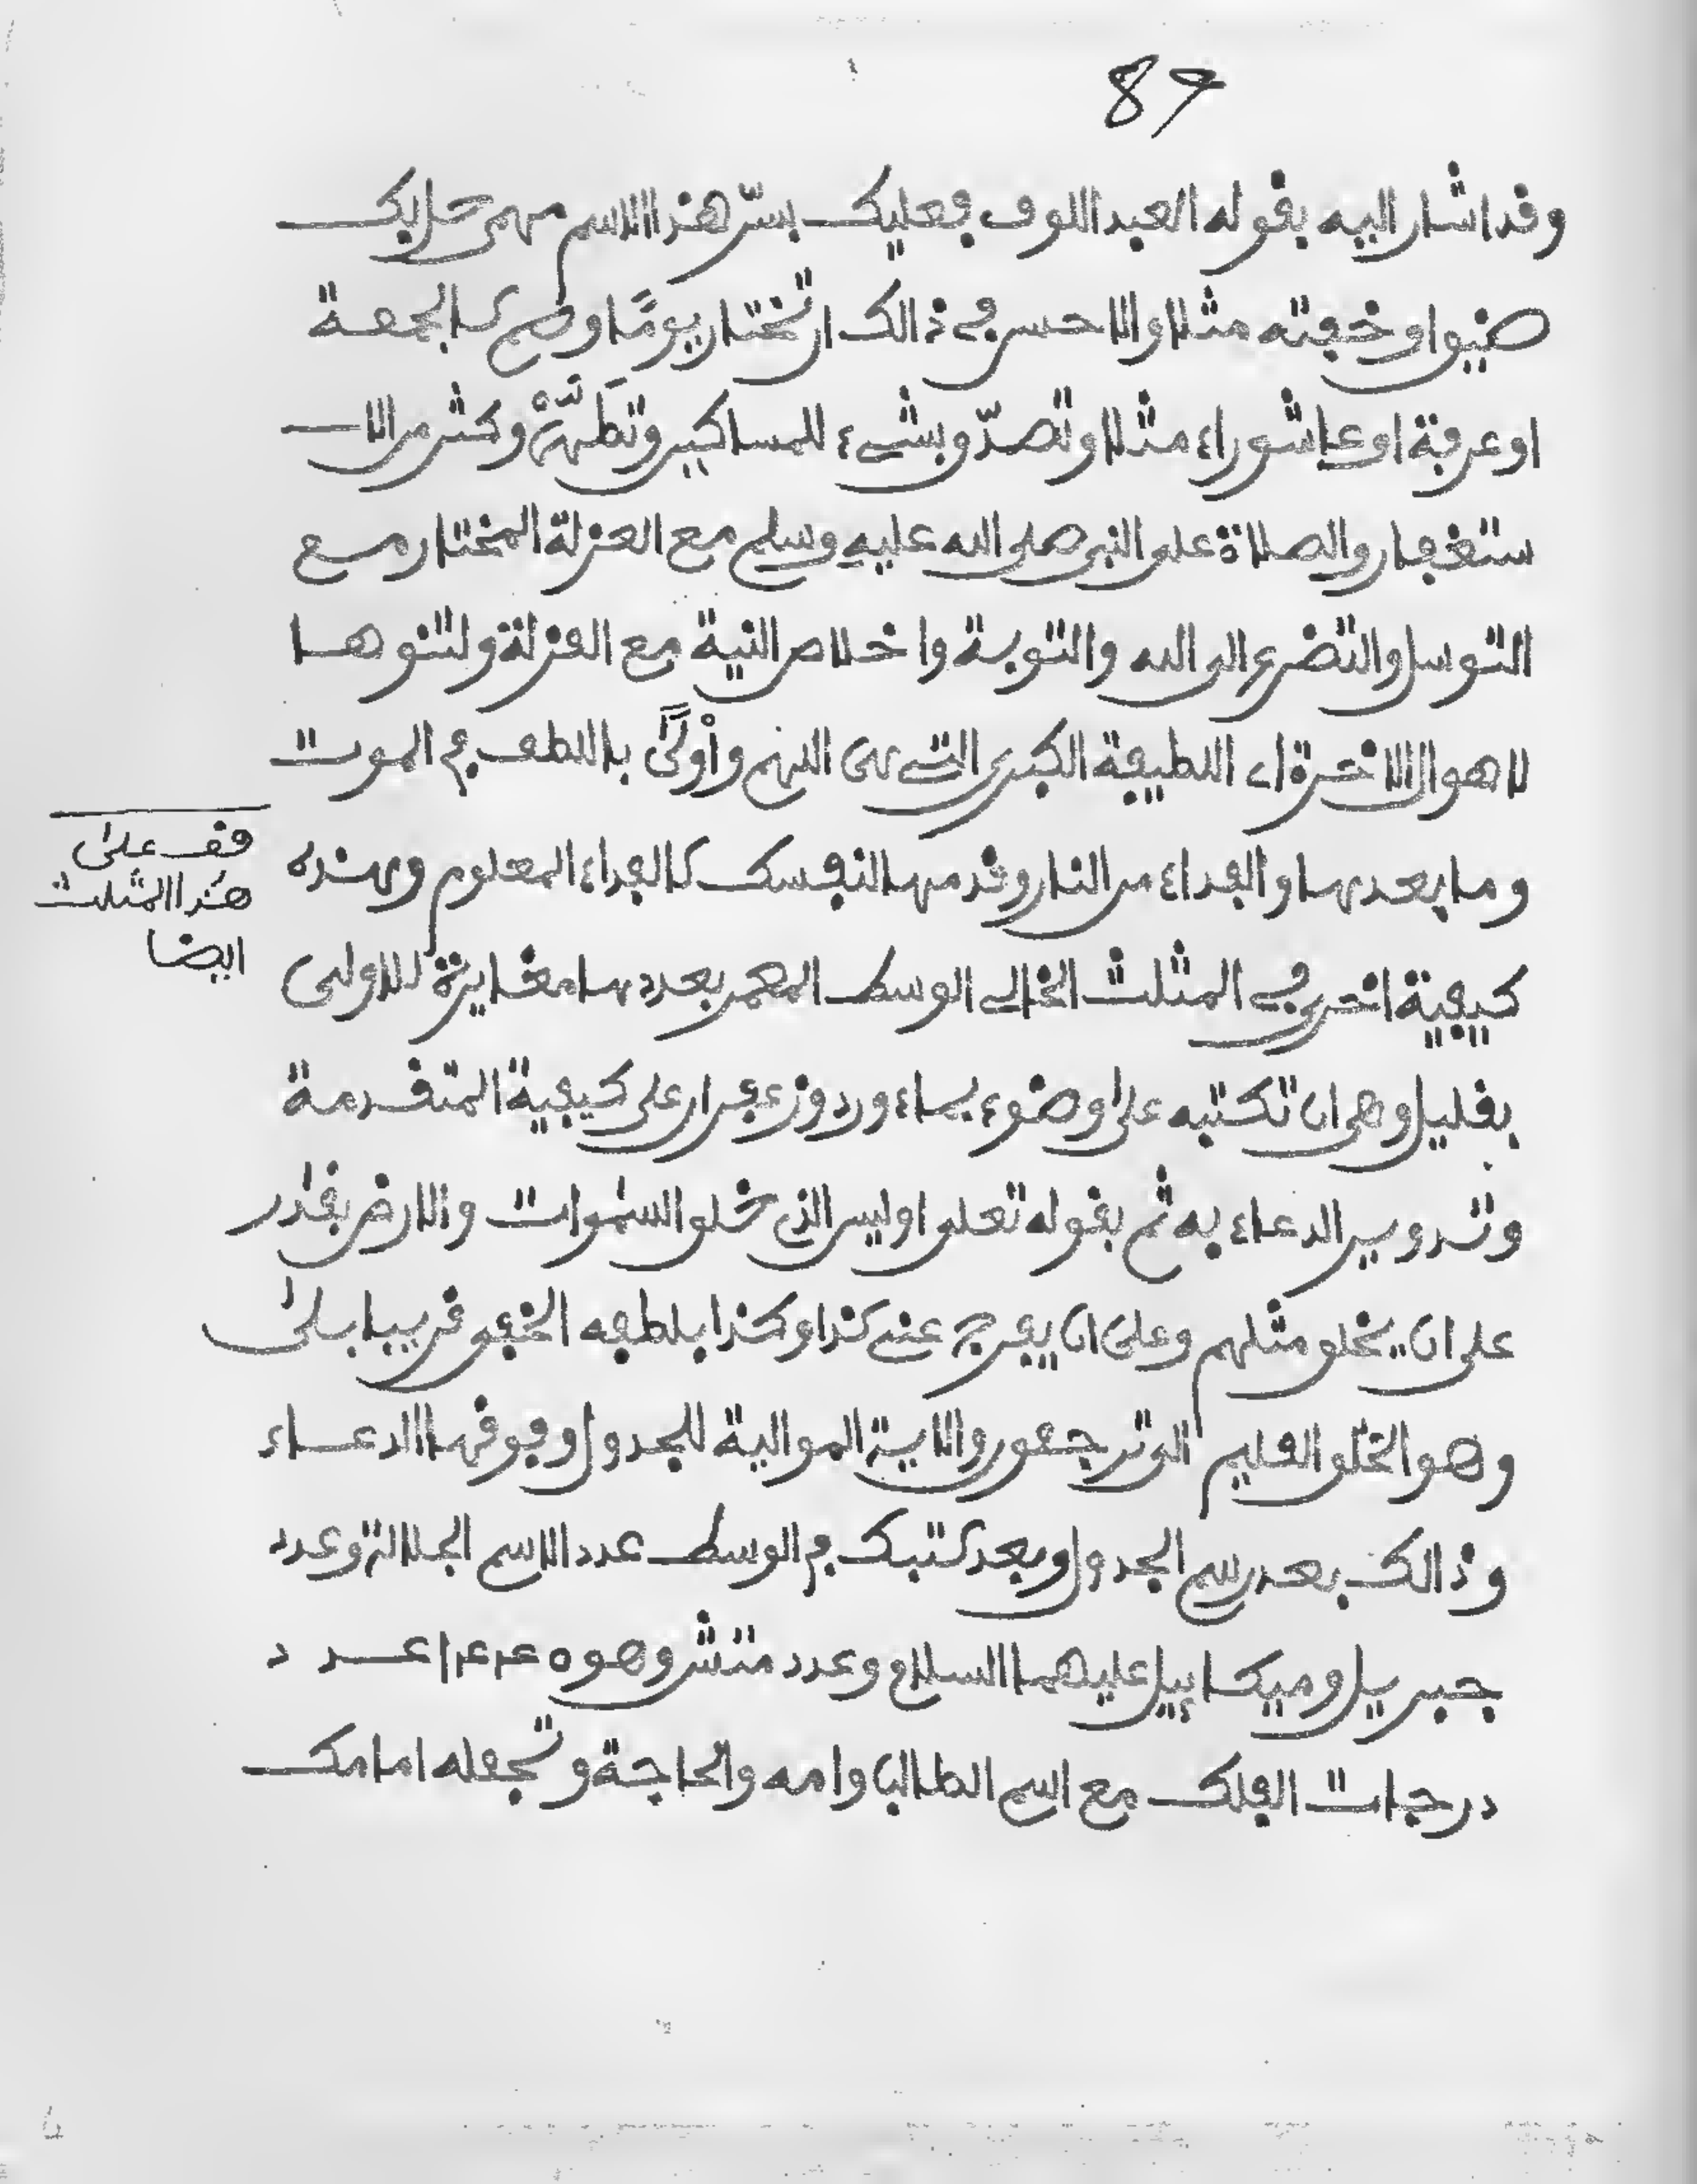 87
وقد اشار اليه بقوله العبد اللوف فعليك بسر هذا الاسم مهمى حل بك
ضيق او خفته مثلا والاحسن في ذالك ان تختار يومًا وضم كالجمعة
او عرفة او عاشوراء مثلا وتصدّق بشيء للمساكين وتطَهَّرْ وكثر من الا
ستغفار والصلاة على النبي صلى الله عليه وسلم مع العزلة المختار مع
التوسل والتضرع الى الله والتوبة واخلاص النية مع العزلة ولتنوها
لاهوال الاخرة اي اللطيفة الكبرى التي هى اللهم وأوْلَى باللطف في الموت
وما بعدها والفداء من النار وقدمها لنفسك كالفداء المعلوم وهذه
كيفية اخرى في المثلث الخالي الوسط المعمر بعددها مغايرة للاولى
بقليل وهي ان تكتبه على وضوء بماء ورد وزعفران على كيفية المتقدمة
وتدوير الدعاء به ثم بقوله تعلى اوليس الذى خلق السموات والارض بقدر
على ان يخلق مثلهم وعلى ان يفرج عني كذا وكذا بلطفه الخفى قريبا بلى
وهو الخلق العليم الى ترجعون والاية الموالية للجدول وفوقها الدعاء
وذالك بعد رسم الجدول وبعد كتبك في الوسط عدد الاسم الجلالة وعدد
جبريل وميكاييل عليهما السلام وعدد منتش وهو عدد
درجات الفلك مع اسم الطالب وامه والحاجة وتجعله امامك
قف على
هذا المثلث
ايضا